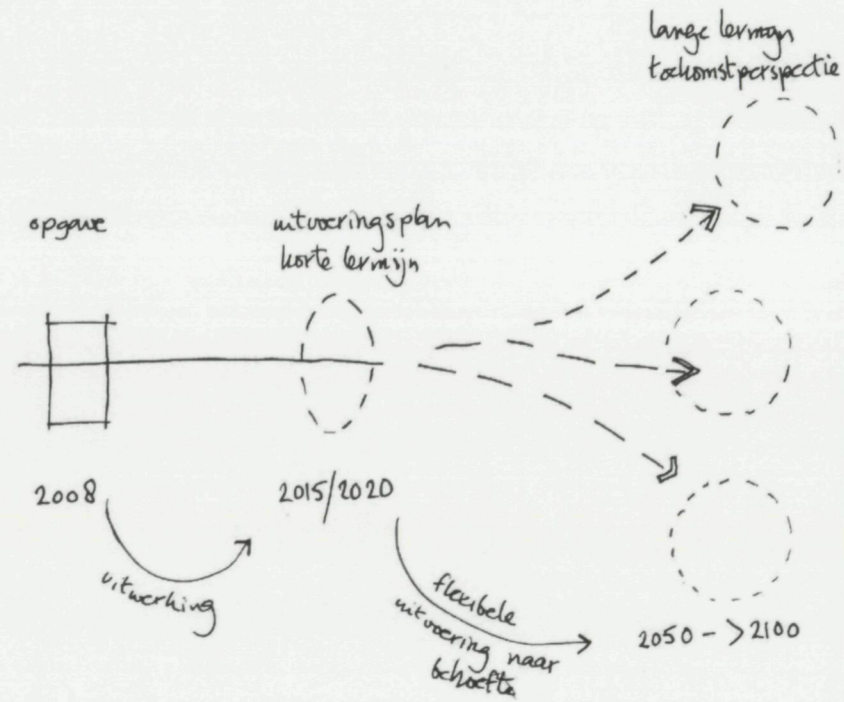 lange termijn
toekomstperspectie
opgave
uitvoeringsplan
korte termijn
2008
2015/2020
uitwerking
flexibele
uitvoering naar
behoefte
2050 -> 2100